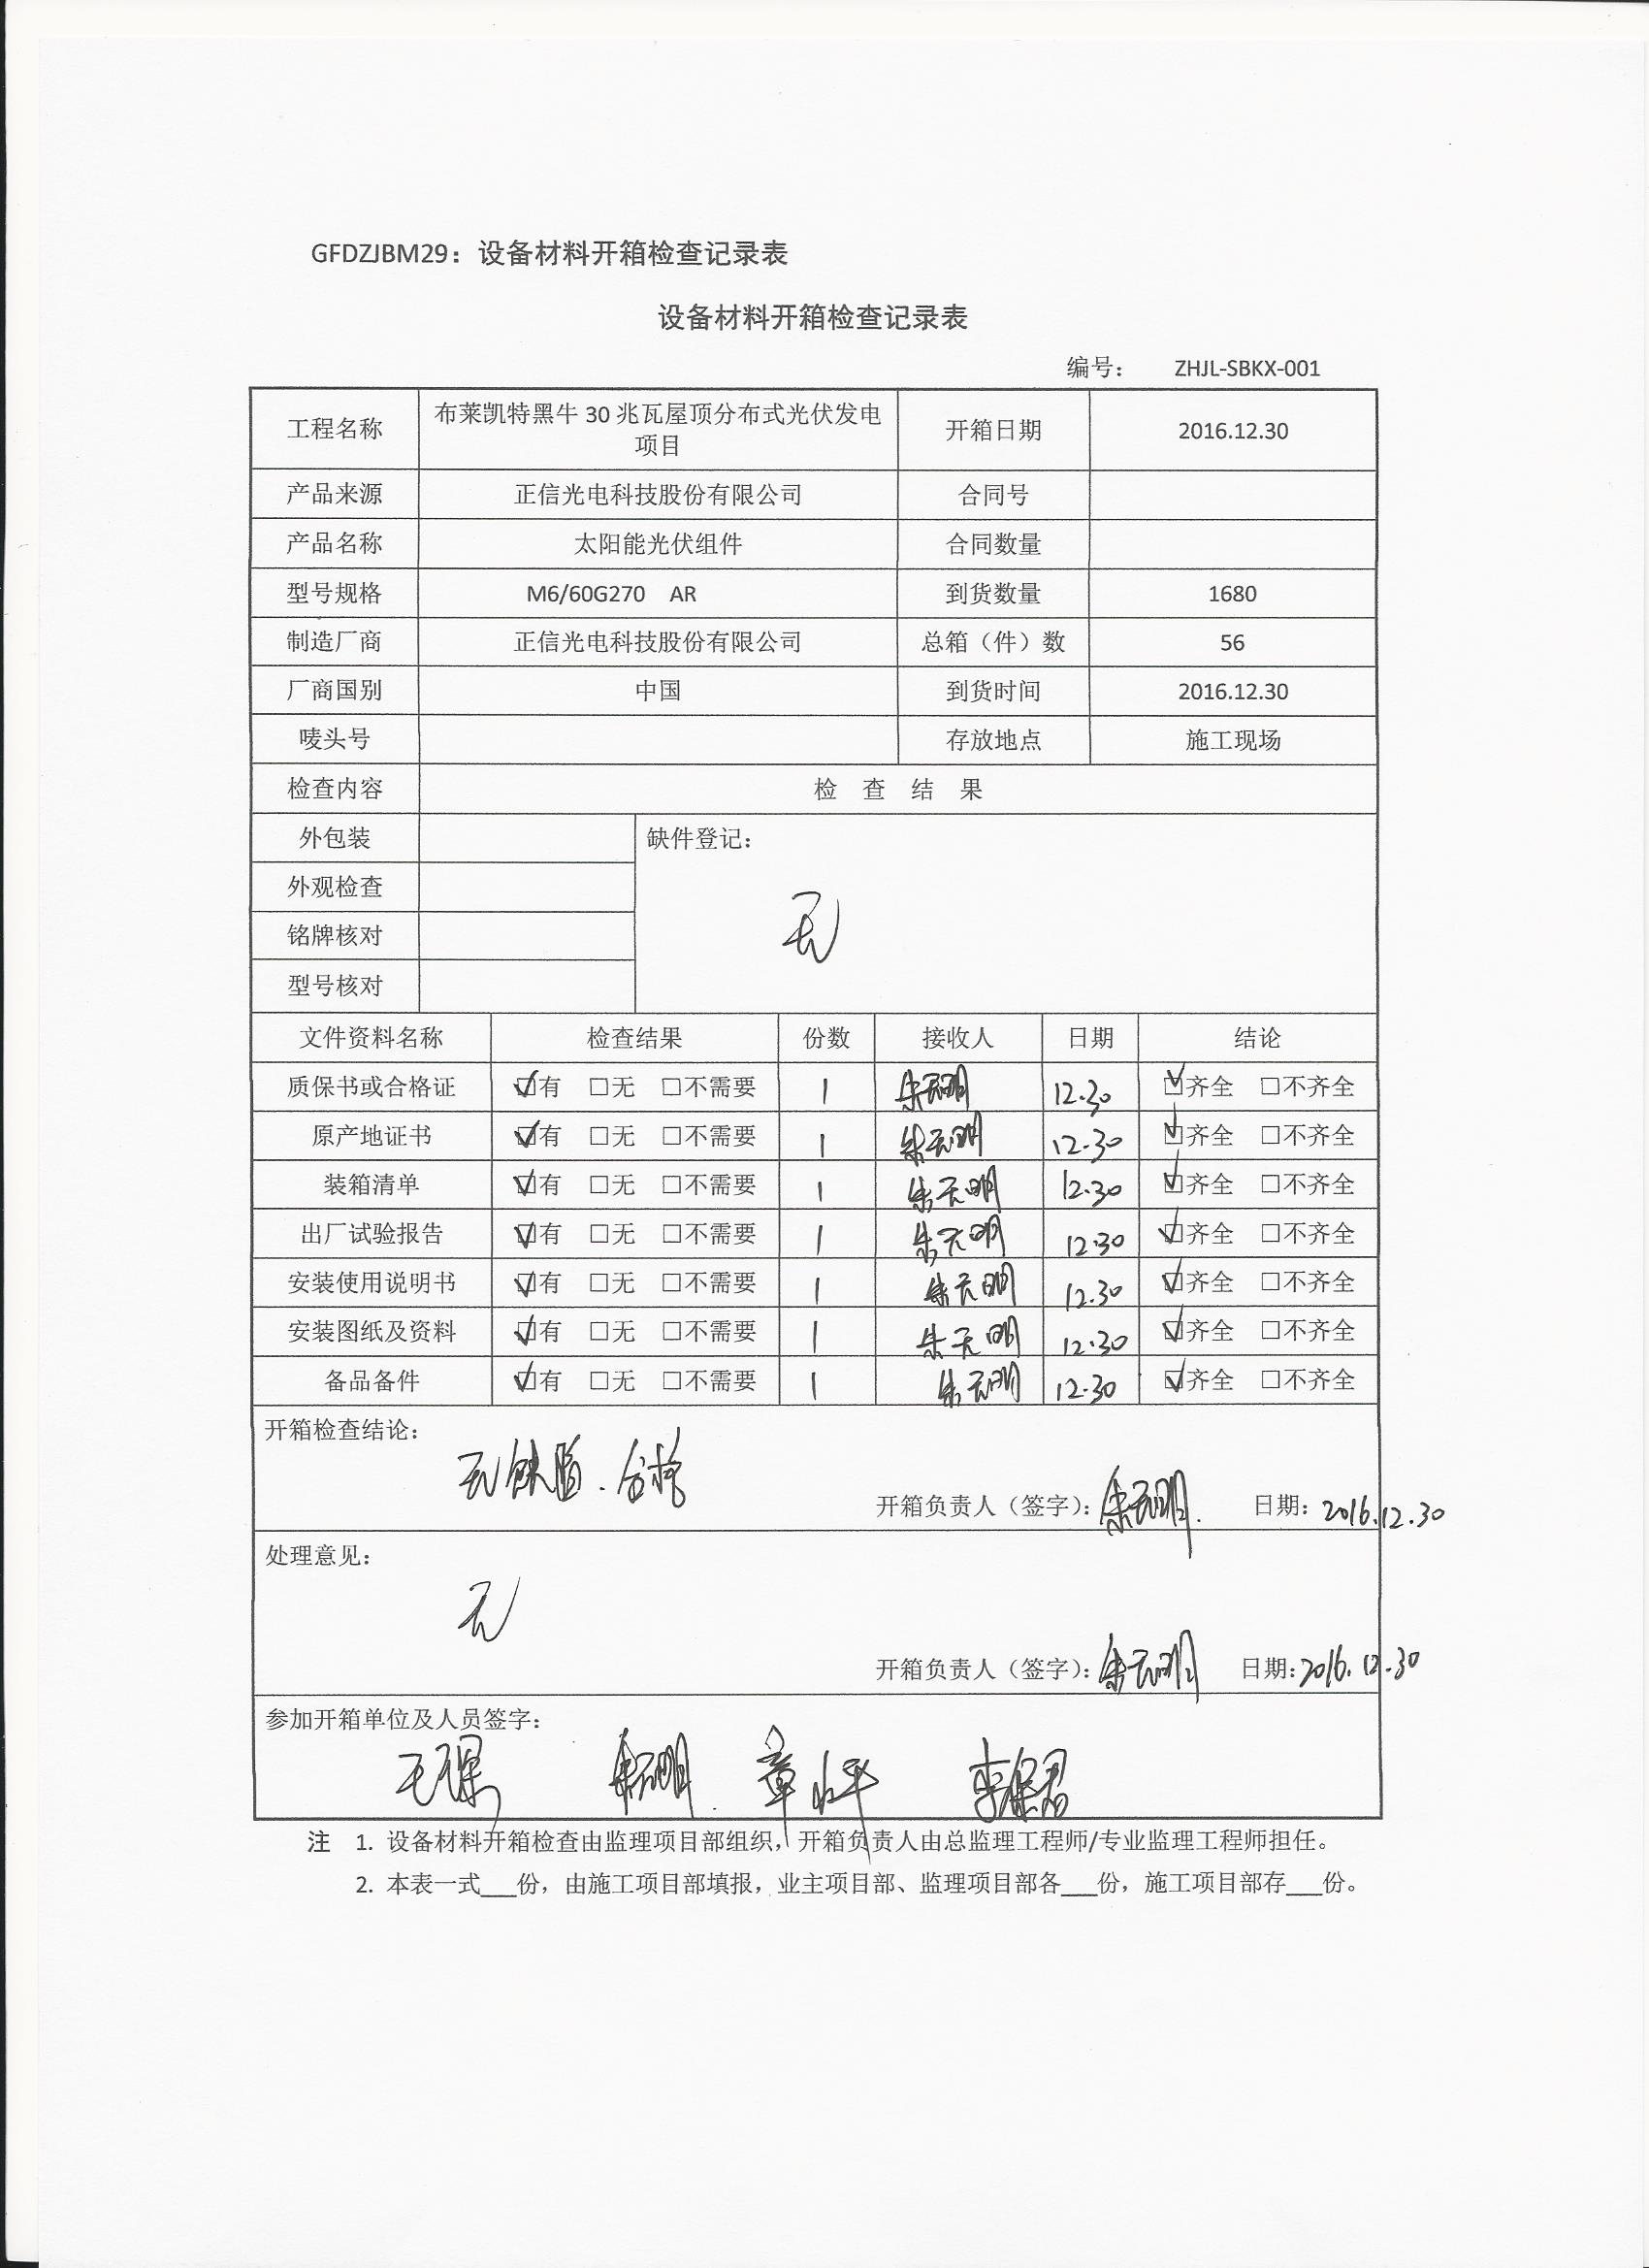 GFDZJBM29：设备材料开箱检查记录表
设备材料开箱检查记录表
编号： ZHJL-SBKX-001
工程名称 布莱凯特黑牛 30 兆瓦屋顶分布式光伏发电项目 开箱日期 2016.12.30
产品来源 正信光电科技股份有限公司 合同号
产品名称 太阳能光伏组件 合同数量
型号规格 M6/60G270 AR 到货数量 1680
制造厂商 正信光电科技股份有限公司 总箱（件）数 56
厂商国别 中国 到货时间 2016.12.30
唛头号 存放地点 施工现场
检查内容 检 查 结 果
外包装 缺件登记：
外观检查 无
铭牌核对
型号核对
文件资料名称 检查结果 份数 接收人 日期 结论
质保书或合格证 ☑有 □无 □不需要 1 朱天明 12.30 ☑齐全 □不齐全
原产地证书 ☑有 □无 □不需要 1 朱天明 12.30 ☑齐全 □不齐全
装箱清单 ☑有 □无 □不需要 1 朱天明 12.30 ☑齐全 □不齐全
出厂试验报告 ☑有 □无 □不需要 1 朱天明 12.30 ☑齐全 □不齐全
安装使用说明书 ☑有 □无 □不需要 1 朱天明 12.30 ☑齐全 □不齐全
安装图纸及资料 ☑有 □无 □不需要 1 朱天明 12.30 ☑齐全 □不齐全
备品备件 ☑有 □无 □不需要 1 朱天明 12.30 ☑齐全 □不齐全
开箱检查结论：
无缺陷．合格
开箱负责人（签字）：朱天明 日期：2016.12.30
处理意见：
无
开箱负责人（签字）：朱天明 日期：2016.12.30
参加开箱单位及人员签字：
朱天明
注 1. 设备材料开箱检查由监理项目部组织，开箱负责人由总监理工程师/专业监理工程师担任。
2. 本表一式___份，由施工项目部填报，业主项目部、监理项目部各___份，施工项目部存___份。